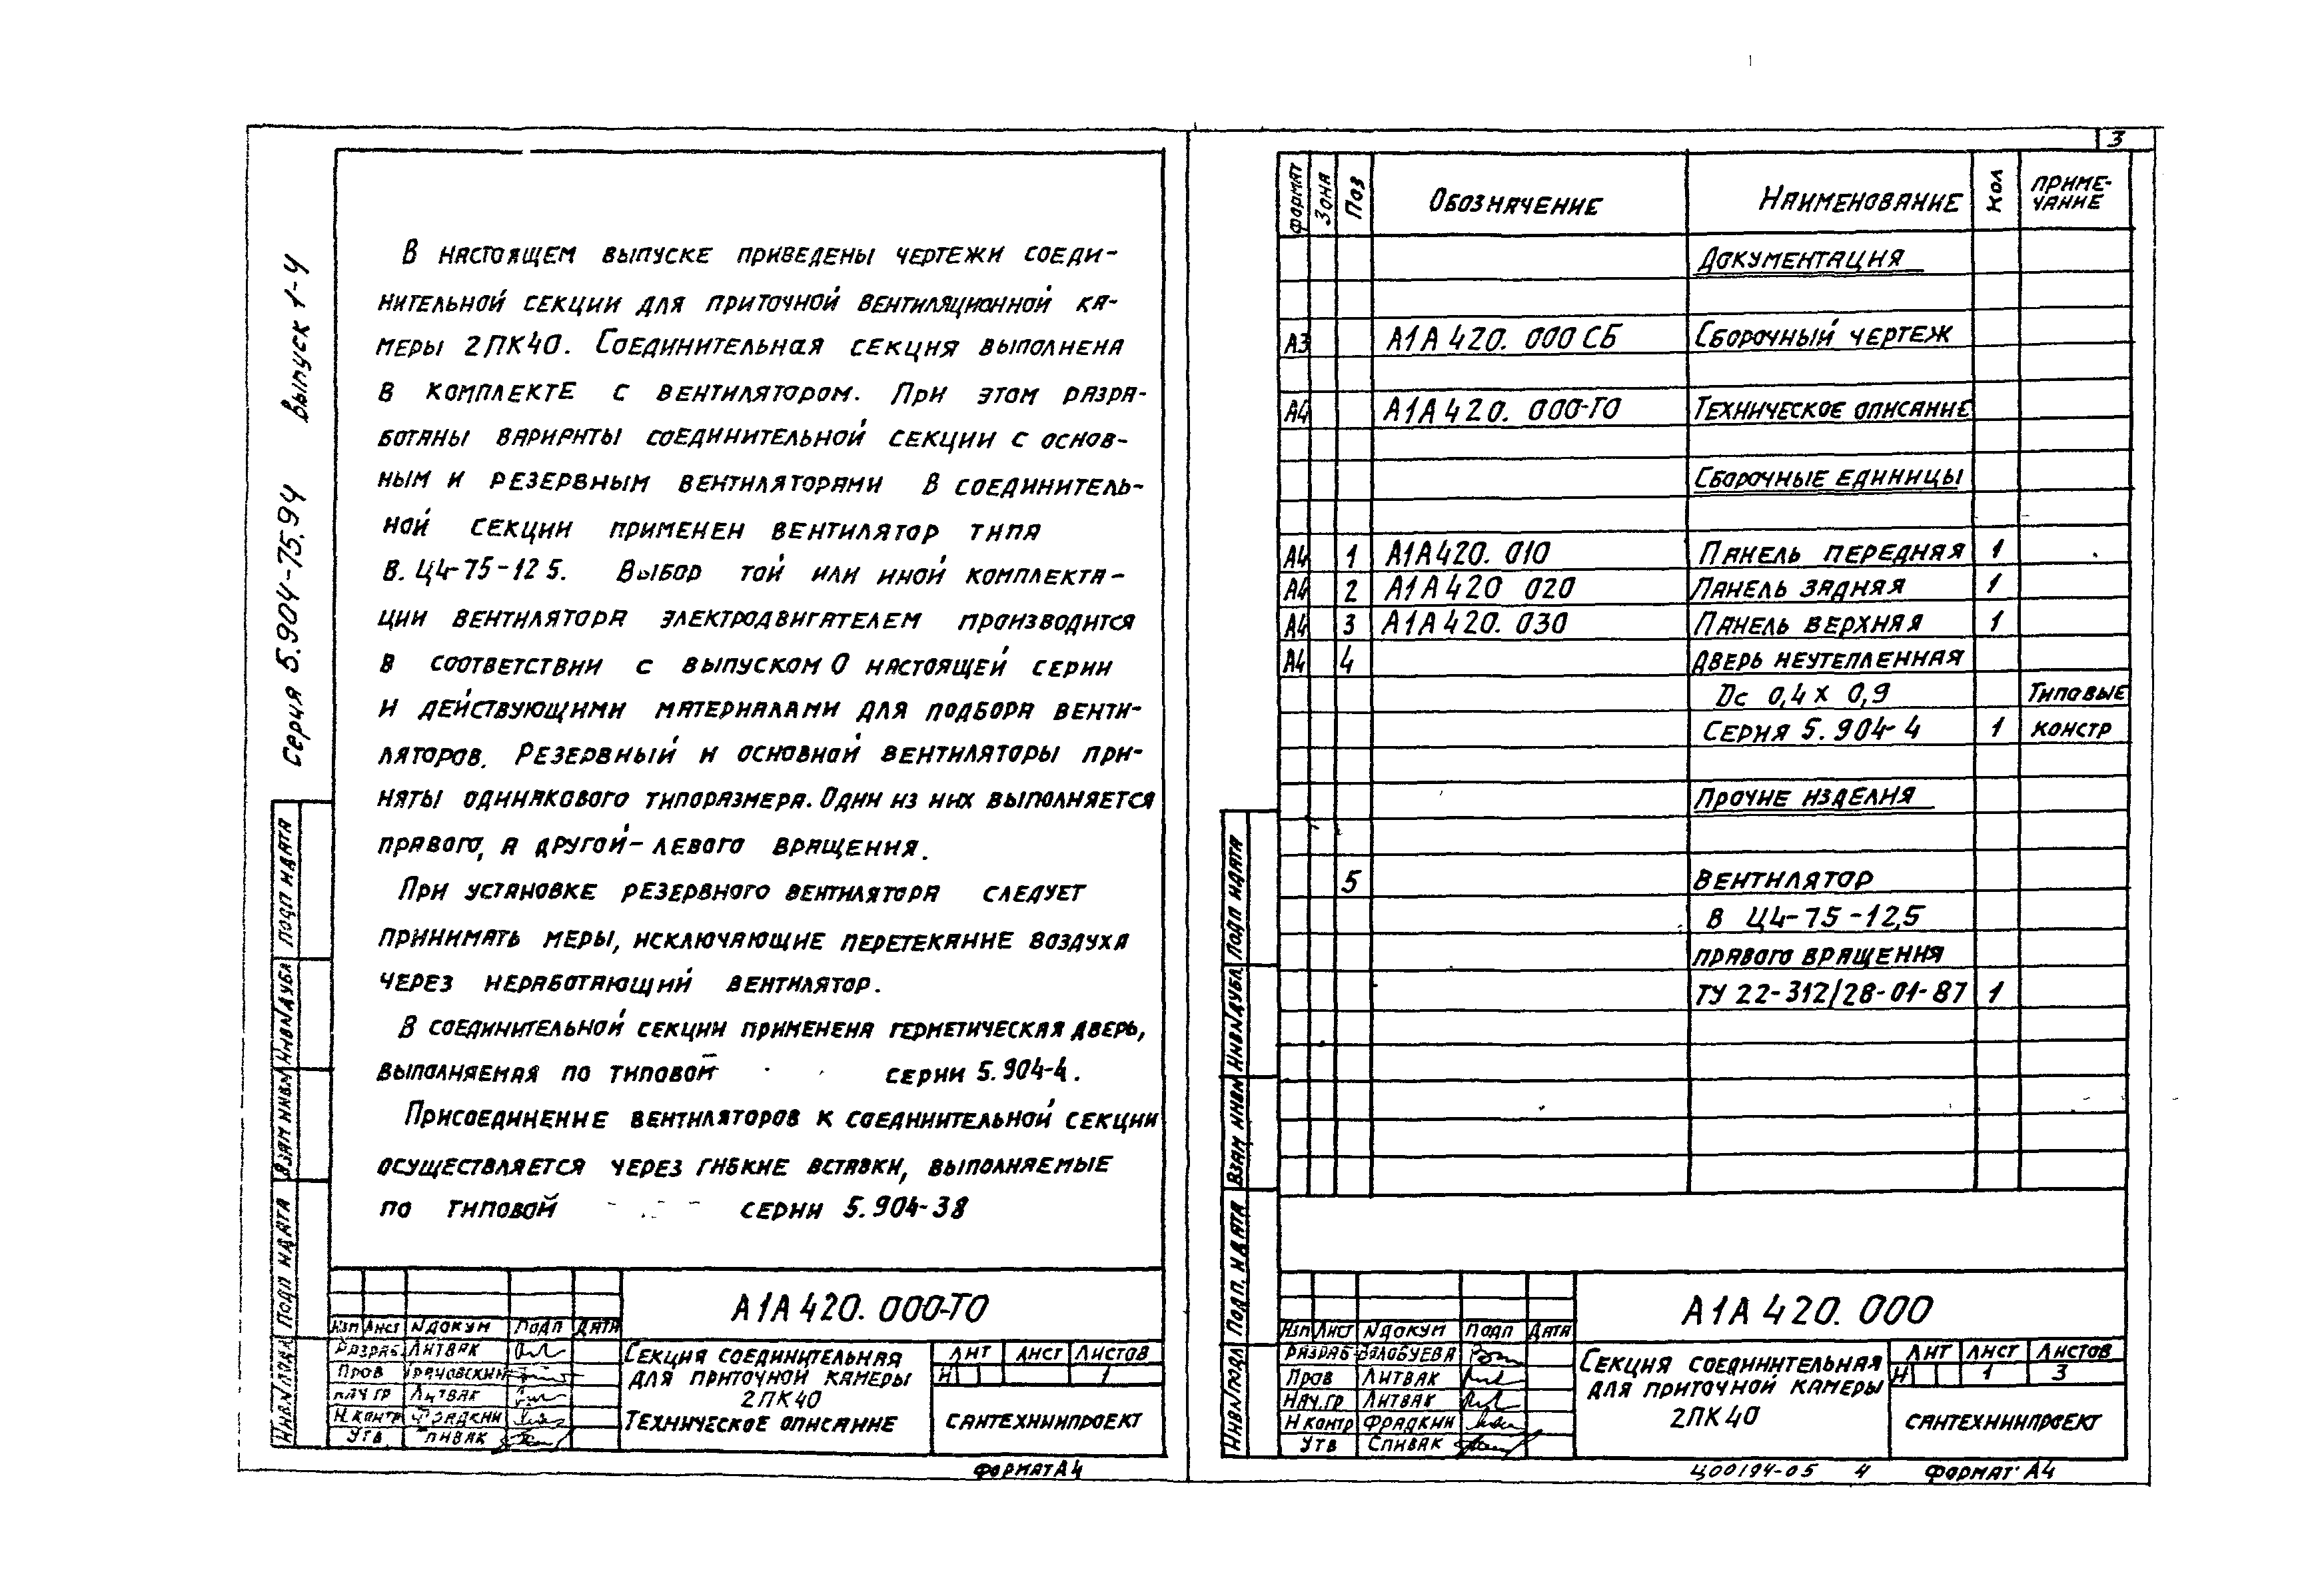 Серия 5.904-75.94 Выпуск 1-4
В настоящем выпуске приведены чертежи соеди-
нительной секции для приточной вентиляционной ка-
меры 2ПК40. Соединительная секция выполнена
в комплекте с вентилятором. При этом разра-
ботаны варианты соединительной секции с основ-
ным и резервным вентиляторами В соединитель-
ной секции применен вентилятор типа
В.Ц4-75-12 5. Выбор той или иной комплекта-
ции вентилятора электродвигателем производится
в соответствии с выпуском 0 настоящей серии
и действующими материалами для подбора венти-
ляторов. Резервный и основной вентиляторы при-
няты одинакового типоразмера. Один из них выполняется
правого, а другой - левого вращения.
При установке резервного вентилятора следует
принимать меры, исключающие перетекание воздуха
через неработающий вентилятор.
В соединительной секции применена герметическая дверь,
выполняемая по типовой серии 5.904-4.
Присоединение вентиляторов к соединительной секции
осуществляется через гибкие вставки, выполняемые
по типовой серии 5.904-38
Подп и дата
Инв N дубл
Взам инв N
Подп и дата
Инв N подл
А1А420.000-ТО
Изм Лист N докум Подп Дата
Разраб Литвак
Пров
Нач гр Литвак
Н.контр Фрадкин
Утв Спивак
Секция соединительная
для приточной камеры
2ПК40
Техническое описание
Лит Лист Листов
И 1
Сантехниипроект
Формат А4
3
Формат Зона Поз Обозначение Наименование Кол Приме-
чание
Документация
А3 А1А420.000СБ Сборочный чертеж
А4 А1А420.000-ТО Техническое описание
Сборочные единицы
А4 1 А1А420.010 Панель передняя 1
А4 2 А1А420 020 Панель задняя 1
А4 3 А1А420.030 Панель верхняя 1
А4 4 Дверь неутепленная
Dс 0,4 х 0,9 Типовые
Серия 5.904-4 1 констр
Прочие изделия
5 Вентилятор
В Ц4-75-12,5
правого вращения
ТУ 22-312/28-01-87 1
Подп и дата
Инв N дубл
Взам инв N
Подп. и дата
Инв N подл
А1А420.000
Изм Лист N докум Подп Дата
Разраб Волобуева
Пров Литвак
Нач.гр Литвак
Н контр Фрадкин
Утв Спивак
Секция соединительная
для приточной камеры
2ПК40
Лит Лист Листов
И 1 3
Сантехниипроект
Ц00194-05 4 Формат А4